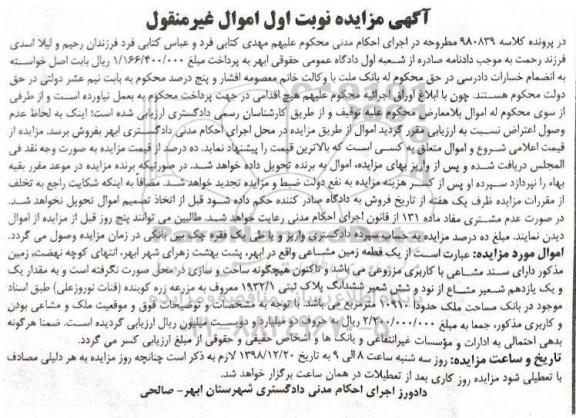 آگهی مزایده نوبت اول اموال غیرمنقول
در پرونده کلاسه ۹۸۰۸۳۹ مطروحه در اجرای احکام مدنی محکوم علیهم مهدی کتابی فرد و عباس کتابی فرد فرزندان رحیم و لیلا اسدی
فرزند رحمت به موجب دادنامه صادره از شعبه اول دادگاه عمومی حقوقی ابهر به پرداخت مبلغ ۱/۱۶۶/۴۰۰/۰۰۰ ریال بابت اصل خواسته
به انضمام خسارات دادرسی در حق محکوم له بانک ملت با وکالت خانم معصومه افشار و پنج درصد محکوم به بابت نیم عشر دولتی در حق
دولت محکوم هستند. چون با ابلاغ اوراق اجرائیه محکوم علیهم هیچ اقدامی در جهت پرداخت محکوم به بعمل نیاورده است و از طرفی
از سوی محکوم له اموال بلامعارض محکوم علیه توقیف و از طریق کارشناسان رسمی دادگستری ارزیابی شده است؛ اینک به لحاظ عدم
وصول اعتراض نسبت به ارزیابی مقرر گردید اموال از طریق مزایده در محل اجرای احکام مدنی دادگستری ابهر بفروش برسد. مزایده از
قیمت اعلامی شروع و اموال متعلق به کسی است که بالاترین قیمت را پیشنهاد نماید. ده درصد از قیمت مزایده به صورت وجه نقد فی
المجلس دریافت شده و پس از واریز بهای مزایده، اموال به برنده تحویل داده خواهد شد. در صورتیکه برنده مزایده در موعد مقرر بقیه
بهاء را نپردازد سپرده او پس از کسر هزینه مزایده به نفع دولت ضبط و مزایده تجدید خواهد شد. مضافاً به اینکه شکایت راجع به تخلف
از مقررات مزایده ظرف یک هفته از تاریخ فروش به دادگاه صادر کننده حکم داده شود قبل از اتخاذ تصمیم اموال تحویل نخواهد شد.
در صورت عدم مشتری مفاد ماده ۱۳۱ از قانون اجرای احکام مدنی رعایت خواهد شد. طالبین می توانند پنج روز قبل از مزایده از اموال
دیدن نمایند. مبلغ ده درصد مزایده به حساب سپرده دادگستری واریز و یا طی یک فقره چک بین بانکی در زمان مزایده وصول می گردد.
اموال مورد مزایده: عبارت است از یک قطعه زمین مشاعی واقع در ابهر، پشت بهشت زهرای شهر ابهر، انتهای کوچه نهضت، زمین
مذکور دارای سند مشاعی با کاربری مزروعی می باشد و تاکنون هیچگونه ساخت و سازی در محل صورت نگرفته است و به مقدار یک
و یک یازدهم شعیر مشاع از نود و شش شعیر ششدانگ پلاک ثبتی ۱۹۳۲/۱ معروف به مزرعه زره کوبنده (قنات نوروزعلی) طبق اسناد
موجود در بانک مساحت ملک حدودا ۱۰۹۱۰ مترمربع می باشد. با توجه به مشخصات و توضیحات فوق و موقعیت ملک و مشاعی بودن
و کاربری مذکور، جمعا به مبلغ ۲/۲۰۰/۰۰۰/۰۰۰ ریال به حروف دو میلیارد و دویست میلیون ریال ارزیابی گردیده است. ضمنا هرگونه
بدهی احتمالی به ادارات و مؤسسات غیرانتفاعی و بانک ها و اشخاص حقیقی و حقوقی از مبلغ ارزیابی کسر می گردد.
تاریخ و ساعت مزایده: روز سه شنبه ساعت ۸ الی ۹ به تاریخ ۱۳۹۸/۱۲/۲۰ لازم به ذکر است چنانچه روز مزایده به هر دلیلی مصادف
با تعطیلی شود مزایده روز کاری بعد از تعطیلات در همان ساعت برگزار خواهد شد.
دادورز اجرای احکام مدنی دادگستری شهرستان ابهر- صالحی